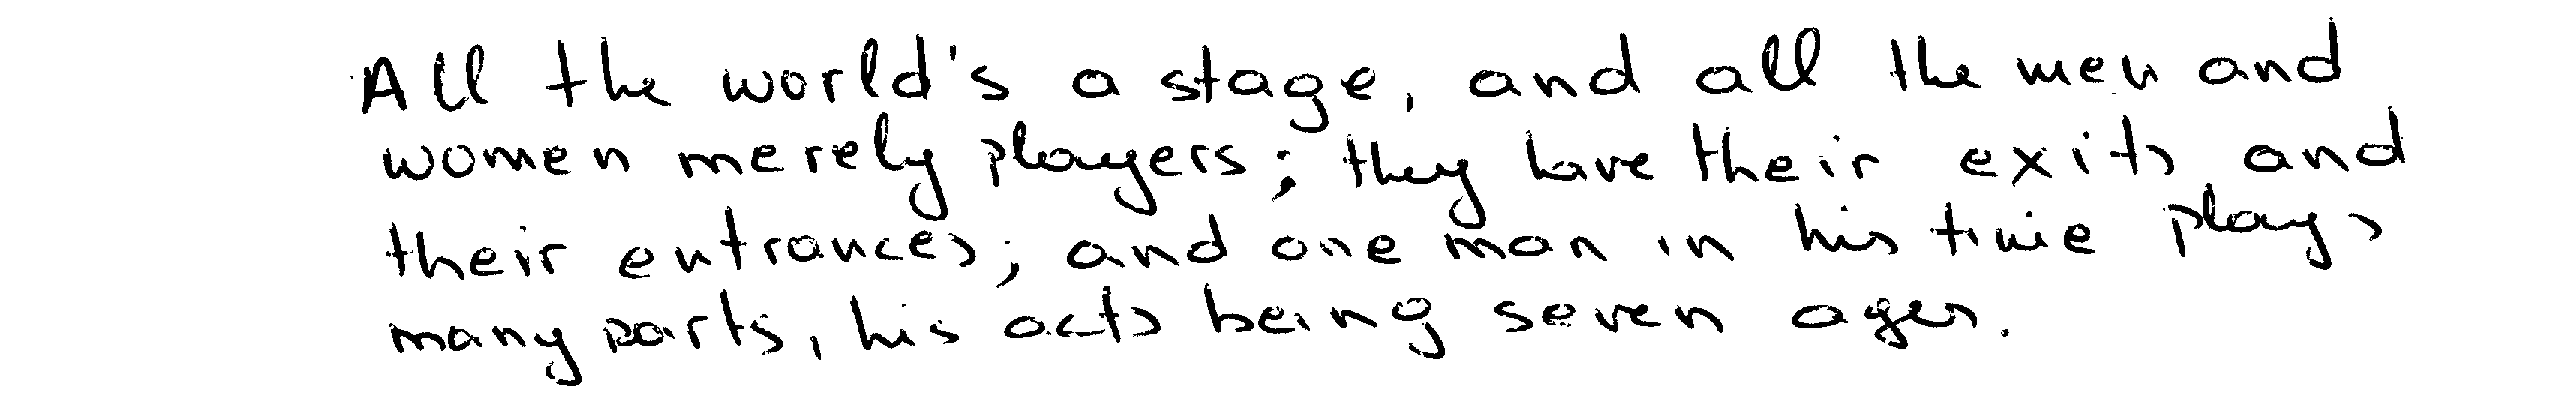 All the world's a stage, and all the men and
women merely players; they have their exits and
their entrances; and one man in his time plays
many parts, his acts being seven ages.